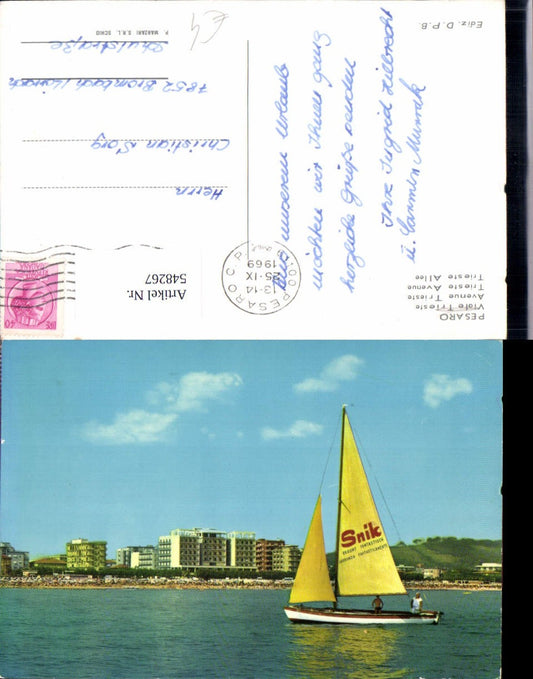 Ediz. D. P. B.
P. MARZARI S.R.L. SCHIO
Aus unserem Urlaub
möchten wir Ihnen ganz
herzliche Grüße senden
Ihre Ingrid Hilbrecht
u. Carmen
Herrn
Christian Sorg
7852 Brombach/Lörrach
Schulstraße
PESARO C.P.
13-14
25·IX
1969
Artikel Nr.
548267
PESARO
Viale Trieste
Avenue Trieste
Trieste Avenue
Trieste Allee
Snik